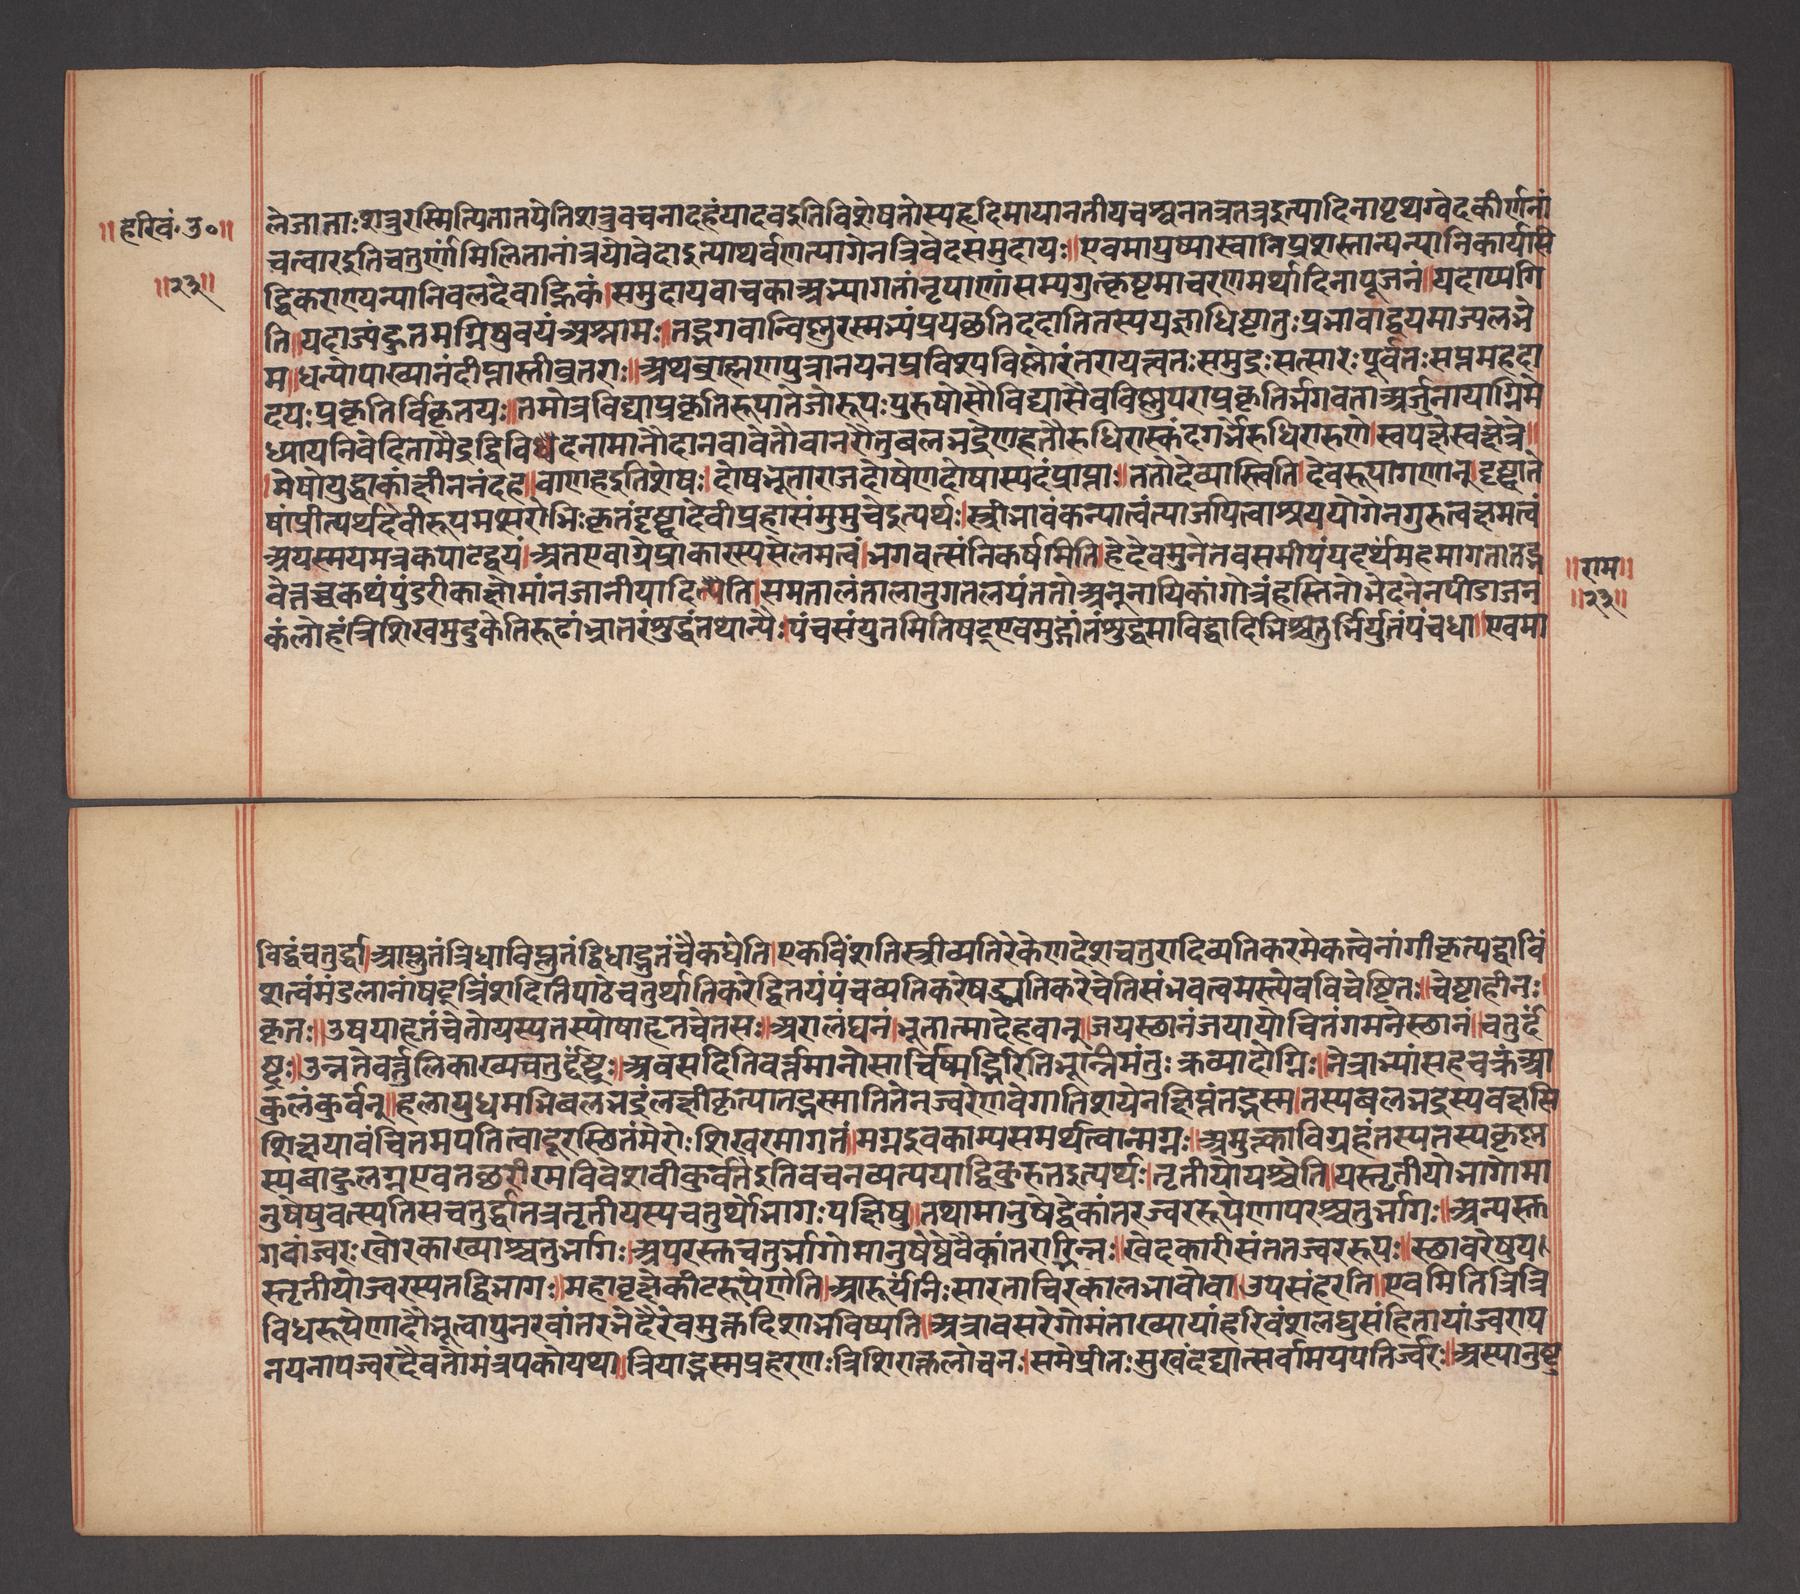 ॥हरिवं॰उ॰॥
॥२३॥
लेजाताःशत्रुरस्मित्यितातपेतिशत्रुवचनादहंयादवइतिविशेषतोस्यहृदिमायानतीयचश्चनतत्रतत्रइत्यादिनापृथग्वेदकीर्णनां
चत्वारइतिचतुर्णांमिलितानांत्रयोवेदाइत्याथर्वणत्यागेनत्रिवेदसमुदायः॥एवमायुष्यास्वानिप्रशस्तान्यन्यानिकार्यासि
द्धिकराण्यन्यानिबलदेवाह्निकं।समुदायवाचकाअभ्यागतांनृपाणांसम्यगुत्कृष्टमाचरणमर्थादिनापूजनं॥यदाप्यगि
ति॥यदाज्यंहुतमग्निषुवयंअश्नामः॥तद्भगवान्विष्णुरस्मभ्यंप्रयछतिददातितस्ययज्ञाधिष्टातुःप्रभावाद्वयमाज्यलभे
म॥धन्योपाख्यानंदीप्तास्तीव्रतराः॥अथब्राह्मणपुत्रानयनप्रविश्यविष्णोरंतरायत्वतःसमुद्रःसत्सारःपूर्वतःसप्तमहदा
दयःप्रकृतिर्विकृतयः॥तमोत्रविद्याप्रकृतिरूपातेजोरूपःपुरुषोसौविद्यासैवविष्णुपराप्रकृतिर्भगवताअर्जुनायाग्रिमे
ध्यायनिवेदितामैइद्विविधदनामानौदानवावेतौवानरौतुबलभद्रेणहतौरुधिरास्कंदगर्भेरुधिरारुणे।स्वपक्षेस्वक्षेत्रे॥
।मेषोयुद्धाकांक्षीननंदह॥वाणहइतिशेषः।दोषभूताराजदोषेणदोषास्पदंप्राप्ताः॥ततोदेव्यास्त्विति।देवरूपागणान्।दृष्ट्वाते
षांप्रीत्यर्थदेवीरूपमप्सरोभिःकृतंदृष्ट्वादेवीप्रहासंमुमुचेइत्यर्थः।स्त्रीभावंकन्यात्वंत्याजयित्वाअययोगेनगुरुत्वक्षमत्वं
अयस्मयमत्रकपाटद्वयं।अतएवाग्रेप्राकारस्यसेलमत्वं।भगवत्संनिकर्षमिति।हेदेवमुनेतवसमीपंयदर्थमहमागतातद्भ
वेत्तच्चकथंपुंडरीकाक्षोमांनजानीयादित्यैति।समतालंतालानुगतलयंततोअनूनायिकांगोत्रंहस्तिनोभेदनेनपीडाजन
कंलोहंत्रिशिखमुदुकेतिरूढांभ्रातरंशुद्धंतथान्यै।पंचसंयुतमितिषट्एवमुद्गोतंशुद्धमाविद्वादिभिश्चतुर्भिर्युतंपंचधा॥एवमा
॥राम॥
॥२३॥
विद्धंचतुर्द्धा।आप्लुतंत्रिधाविप्लुतंद्विधाद्रुतंचैकधेति।एकविंशतिस्त्रीव्यतिरेकेणदेशचतुरादिव्यतिकरमेकत्वेनांगीकृत्यद्वाविं
शत्वंमंडलानांषट्त्रिंशदितिपाठेचतुर्थातिकरेद्वितयंपंचव्यतिकरेषड्व्यतिकरेचेतिसंभवत्वमस्त्येवविचेष्टितः॥चेष्टाहीनः
कृतः॥उषयाहृतंचेतोयस्यतस्योषाहृतचेतसः॥अरालंघनं।भूतात्मादेहवान्।जयस्छानंजयायोचितंगमनेस्छानं॥चतुर्दं
ष्ट्रः॥उन्नतेवर्तुलिकाख्यचतुर्दंष्ट्रः॥अवसदितिवर्त्तमानोसार्चिष्मद्भिरितिभूर्न्निमंतुःक्रव्यादोग्निः॥नेत्राभ्यांसहचक्रंआ
कुलंकुर्वन्॥हलायुधमभिबलभद्रंलक्षीकृत्यातद्भस्मातितेनज्वरेणवेगातिशयेनक्षिप्तंतद्भस्म।तस्यबलभद्रस्यवक्षसि
शिक्षयावंचितमपतित्वादूरस्छितंमेरोःशिखरमागतं॥मग्नइवकाम्पसमर्थत्वान्मग्नः॥अमुत्काविग्रहेतस्यतस्यकृष्ण
स्यबाहुलग्नएवतछरीरमविवेशवीकुर्वतेइतिवचनव्यत्ययाद्विकुरुतइत्यर्थः।तृतीयोयश्चेति॥यस्तृतीयोभागोमा
नुषेषुवत्स्यतिसचतुर्द्धातत्रतृतीयस्यचतुर्थोभागःपक्षिषु॥तथामानुषेद्वेकांतरज्वररूपेणापरश्चतुर्भागः॥अन्यस्त
गवांज्वरःखोरकाख्याश्चतुर्भागः।अपरस्तचतुर्भागोमानुषेष्वेवैकांतरारिन्नः॥खेदकारीसंततज्वररूपः॥स्छावरेषुय।
स्तृतीयोज्वरस्यतद्विभागः॥महावृक्षेकीटरूपेणेति।आरूर्यनिःसारताचिरकालभावोवा।उपसंहरति॥एवमितित्रित्रि
विधरूपेणादौभूत्वापुनरवांतरभेदैरेवमुक्तदिशाभविष्यति॥अत्रावसरेगोमंताख्यायांहरिवंशलघुसंहितायांज्वराप
नयनायज्वरदैवतोमंत्रपकोयथा॥त्रियाद्भस्मप्रहरणःत्रिशिरात्कलोचनः।समेप्रीतःसुखंदद्यात्सर्वामयपतिर्ज्वरः॥अस्यानुष्टु